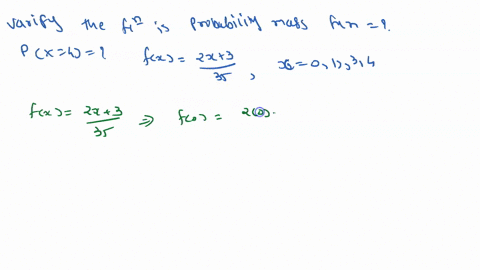 varify the fn is probability mass fun = ?
P(x=4) = ? f(x) = 2x+3/35, x = 0,1,2,3,4
f(x) = 2x+3/35 ⇒ f(0) = 2(0).